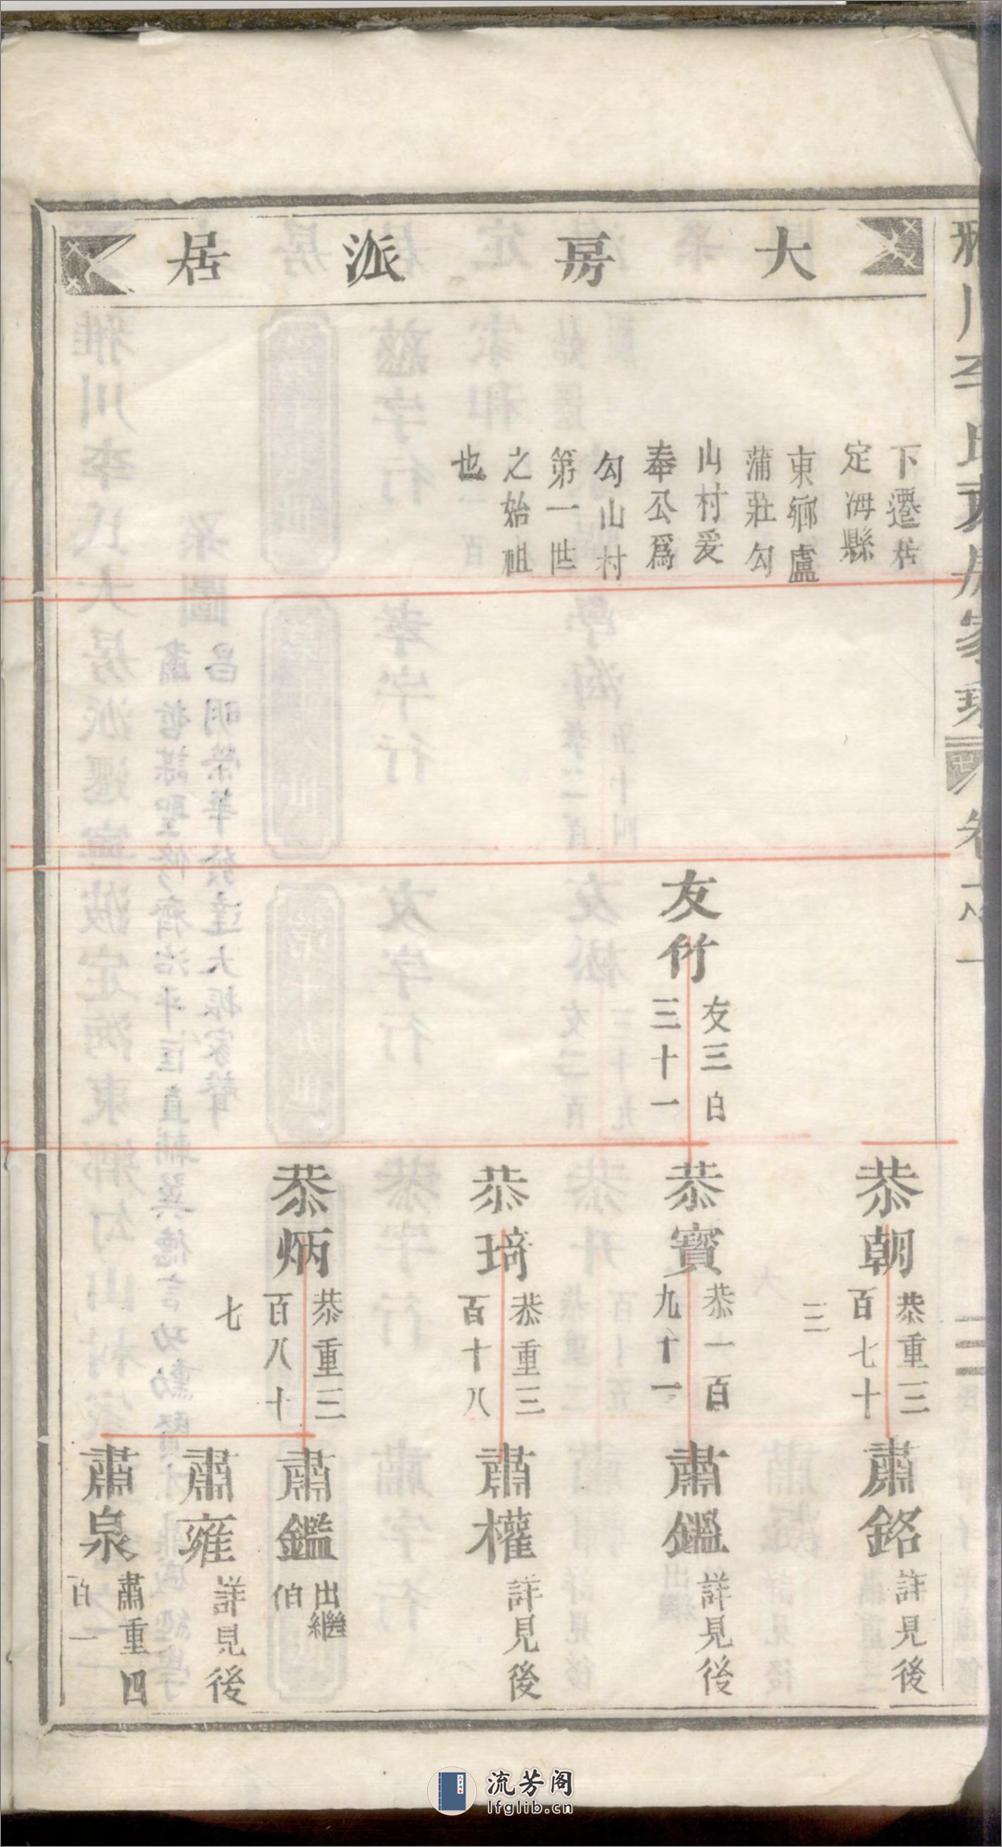 大房派居
下遷居
定海縣
東鄉盧
蒲莊勾
山村爰
奉公爲
勾山村
第一世
之始祖
也
友竹
友三百
三十一
恭朝
恭重三
百七十
三
恭寳
恭一百
九十一
恭琦
恭重三
百十八
恭炳
恭重三
百八十
七
肅銘
詳見後
肅鑑
詳見後
肅權
詳見後
肅鑑
出繼
伯
肅雍
詳見後
肅泉
肅重四
百一
流芳阁
lfglib.cn